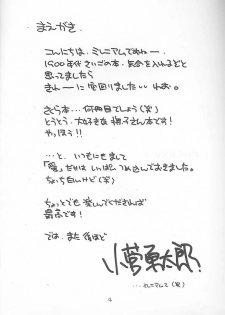 まえがき
こんにちは。ミレニアムですねー。
1900年代さいごの本、気合を入れるぞと
思ってましたら
きれーに空回りました いいねぉ。
きらら本…何冊目でしょう(笑)
とうとう、大好きな 撫子さん本です!
やっほう!!
…と、いつにもまして
「愛」だけは いっぱいつめ込んでおきました。
ちょっち白いけど(笑)
ちょっとでも 楽しんでくだされば
最高です!
では、また後ほど
小菅勇太郎?
…ミレニアムて(笑)